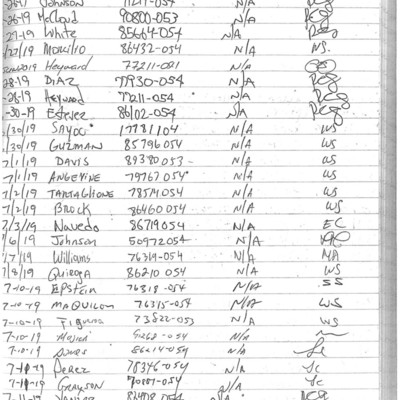 Johnson 054 N/A Reg
-26-19 McCloud 90800-053 N/A Reg
-27-19 White 85664-054 N/A Reg
/27/19 Morillo 86432-054 N/A NS.
2019 Heyward 77211-001 N/A
-28-19 DIAZ 77930-054 N/A Reg
-28-19 Heyward 77211-054 N/A Reg
-30-19 Estevez 86102-054 N/A Reg
/30/19 SAYOC 17781104 N/A WS
/30/19 GUZMAN 85796054 N/A WS
7/1/19 DAVIS 89380053 N/A WS
7/1/19 ANGEVINE 79767054 N/A WS
7/2/19 TARTAGLIONE 78514054 N/A WS
7/2/19 BROCK 86460054 N/A WS
7/3/19 Navedo 86719054 N/A EC
7/6/19 Johnson 50972054 N/A
/7/19 Williams 76319-054 N/A MA
7/8/19 Quiroga 86210 054 N/A WS
7-10-19 Epstein 76318-054 N/A SS
7-10-19 MAQUILON 76315-054 N/A WS
7-10-19 Figueroa 73822-053 N/A WS
7-10-19 054 N/A
7-10-19 86214-054 N/A
7-10-19 Perez 78346-054 N/A
7-10-19 GRAYSON 054 N/A
7-11-19 054 N/A Reg